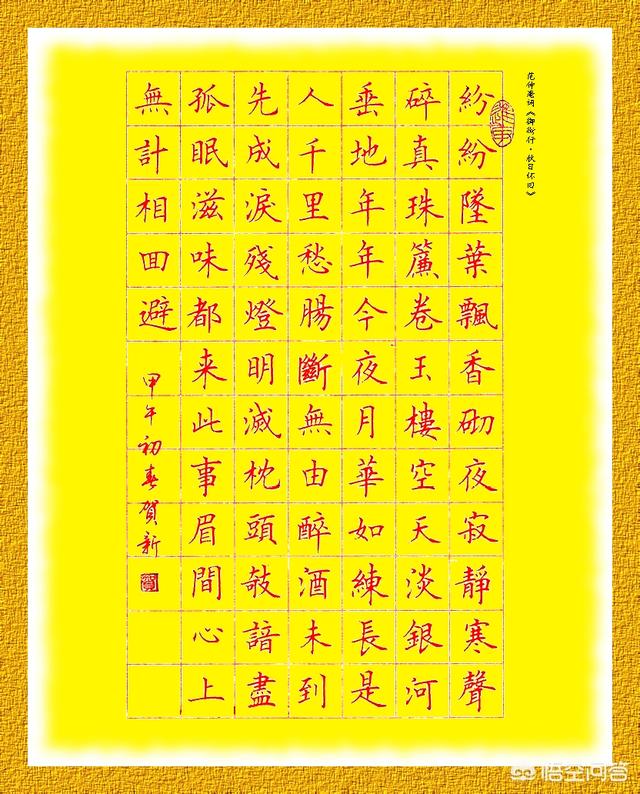 范仲淹词《御街行·秋日怀旧》
紛紛墜葉飄香砌夜寂靜寒聲
碎真珠簾卷玉樓空天淡銀河
垂地年年今夜月華如練長是
人千里愁腸斷無由醉酒未到
先成淚殘燈明滅枕頭敧諳盡
孤眠滋味都来此事眉間心上
無計相囬避
甲午初春賀新
悟空问答